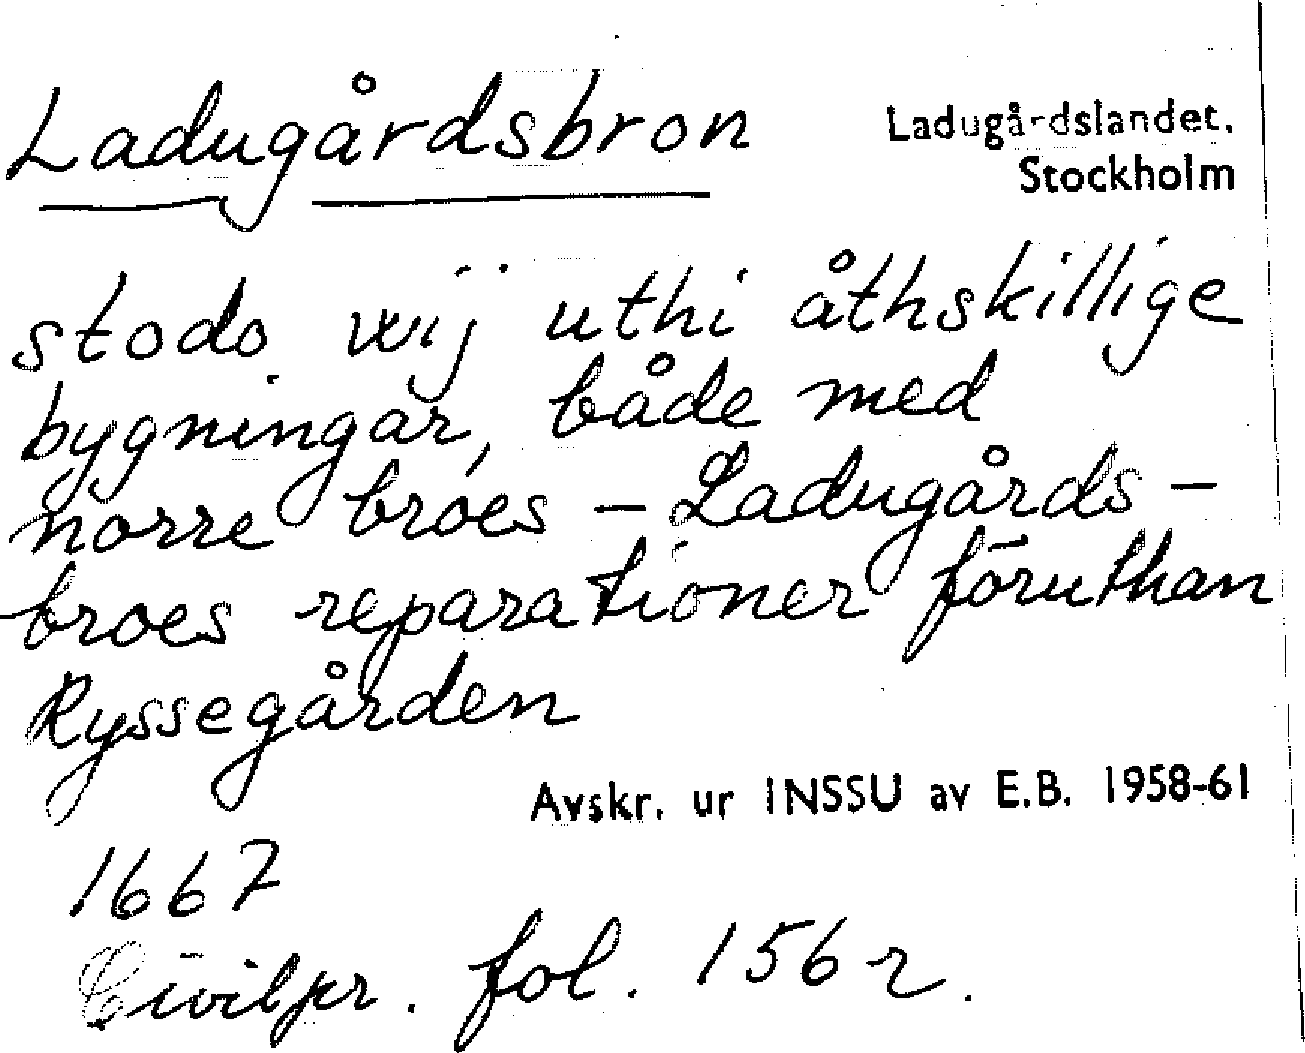 Ladugårdsbron
Ladugårdslandet.
Stockholm
stodo wij uthi åthskillige
bygningar, både med
norre broes - Ladugårds -
broes reparationer föruthan
Ryssegården
Avskr. ur INSSU av E.B. 1958-61
1667
Civilpr. fol. 156 r.